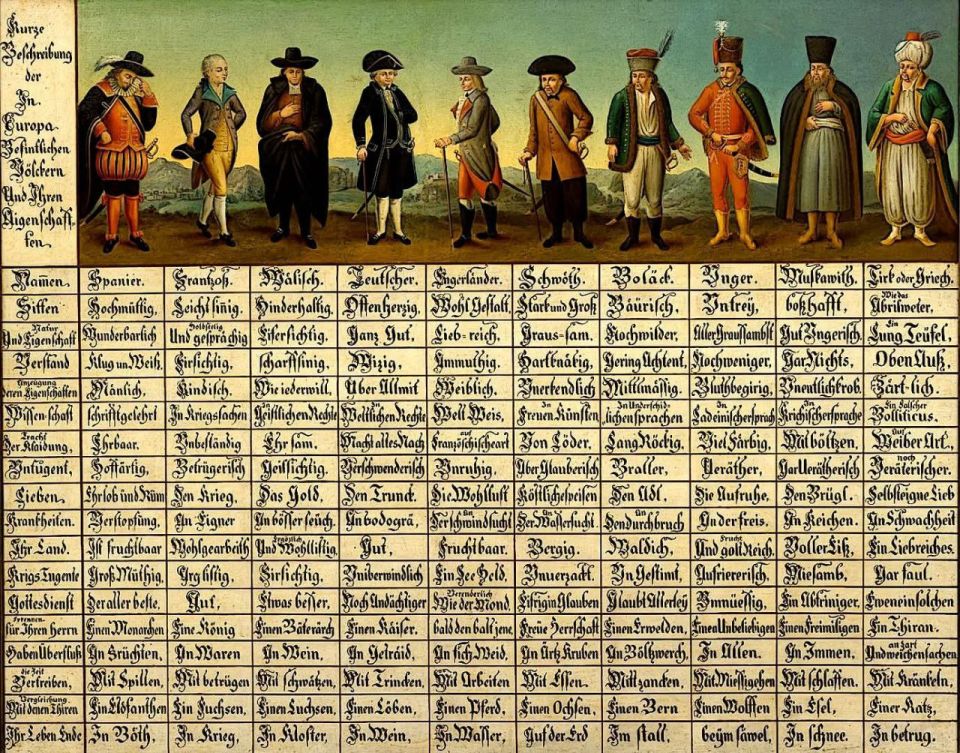 Kurze
Beschreibung
der
In
Europa
Befintlichen
Völckern
Und Ihren
Aigenschaff-
ten.
Namen. Spanier. Frantzoß. Wälisch. Teutscher. Engerländer. Schwöth. Boläck. Unger. Muskawith. Tirk oder Griech.
Sitten Hochmüttig, Leichtsinig, Hinderhaltig, Offenherzig, Wohl Gestalt, Stark und Groß Bäurisch, Untrey, boßhafft, Wie das Abrilweter,
Natur Und Eigenschaft Wunderbarlich Holdseelig Und gesprächig Eifersichtig, Ganz Gut, Lieb-reich, Graus-sam, Hochwilder, Aller Graussambst Gut Ungerisch, Lung Teüfel,
Verstand Klug un Weiß, Firsichtig, scharffsinig, Wizig, Ammuthig, Hartknäkig, Gering Achtent, Nochweniger, Gar Nichts, Oben Auß,
Anzeügung deren Eigenschaften Mänlich, Kindisch, Wie iederwill, Über Allmit Weiblich, Unerkendlich Mittlmässig, Bluthbegirig, Unentlich krob. Zärt-lich.
Wissenschaft schriftgelehrt In Kriegssachen Geistlichen Rechte In Weltlichen Rechte Welt Weis, In Freuen Künsten In Underschid- lichen sprachen In Ladeinischersprach In Krichischersprache Ein Falscher Bolliticus.
Tracht Der Klaidung, Ehrbaar. Unbeständig Ehr sam. Macht alles Nach auf Französischeart Von Löder. Lang Röckig. Viel Färbig, Mit böltzen, Auf Weiber Art,
Untugent, Hoffärtig, Betrügerisch Geilsichtig. Verschwenderisch Unruhig, Aber Glauberisch Braller, Veräther, Gar Verätherisch noch Verätterischer.
Lieben. Ehr lob und Rüm Den Krieg. Das Gold. Den Trunck. Die Wohllust Köstliche speisen Den Adl. Die Aufruhe. Den Brügl. Selbsteigne Lieb
Krankheiten. Verstopfung, An Eigner An bösser seüch. An bodogrä, An Der schwindsucht An Der Wassersucht. An Den durchbruch An der freis. An Keichen. An Schwachheit
Ihr Land. Ist fruchtbaar Wohlgearbeith Ergözlich Und Wohlllistig, Gut, Fruchtbaar. Bergig. Waldich. Frucht Und golt Reich. Voller Eiß, Ein Liebreiches.
Krigs Tugente Groß Müthig, Arg listig, Firsichtig. Uniberwindlich Ein See Held, Unuerzackt. Un Gestimt, Aufriererisch, Miesamb, Gar faul.
Gottesdienst Der aller beste, Gut, Etwas besser, Noch Andächtiger Verenderlich Wie der Mond. Eifrig in Glauben Glaubt Allerley Unmüessig, Ein Abtriniger, Eweneinsolchen
Erkennen für Ihren herrn Einen Monarchen Eine König Einen Baterärch Einen Käiser. bald den balt jene, Freüe Herrschaft Einen Erwelden, Einen Unbeliebigen Einen Freimilligen Ein Thiran.
Haben Überfluß An Früchten, An Waren An Wein, An Geträid, An fich Weid, An Artz Kruben An Böltzwerch, In Allen. An Immen, An zart Und weichen sachen
die Zeit Vertreiben, Mit Spillen, Mit betrügen Mit schwätzen, Mit Trincken, Mit Arbeiten Mit Essen. Mit zancken. Mit Miessigehen Mit schlaffen. Mit Kränkeln,
Vergleichung Mit denen Thiren Ein Elofanthen Ein Fuchsen, Einen Luchsen, Einen Löben, Einen Pferd, Einen Ochsen, Einen Bern Einen Wolffen Ein Esel, Einer Katz,
Ihr Leben Ende In Böth, In Krieg, In Kloster, In Wein, In Wasser, Auf der Erd Im stall. beym säwel, In schnee. In betrug.